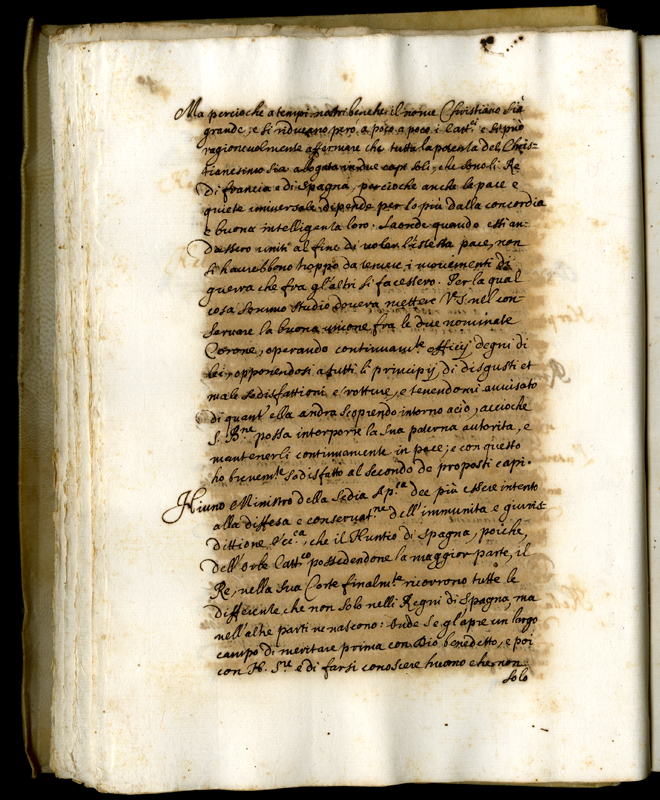 Ma percioche a tempi nostri benche il nome Christiano sia
grande, e si riducano però a poco a poco i Catt.ci e si può
ragionevolmente affermare che tutta la potenza del Chris-
tianesimo sia allogata in due capi soli, che sono li Re
di francia e di Spagna, percioche anche la pace e
quiete universale dipende per lo più dalla concordia
e buona intelligenza loro. Laonde quando essi an-
dassero uniti al fine di voler l'istessa pace, non
si haurebbono troppo da temere i movimenti di
guerra che fra gl'altri si facessero. Per la qual
cosa sommo studio dovera mettere V.S. nel con-
servare la buona unione fra le due nominate
Corone, operando continuam.te officij degni di
lei, opponendosi a tutti li principij di disgusti et
male sodisfattioni e rotture, e tenendomi avvisato
di quant' ella andra scoprendo intorno a ciò, accioche
S. B.ne possa interporre la sua paterna autorità, e
mantenerli continuamente in pace; e con questo
ho brevem.te sodisfatto al secondo de proposti capi.
Niuno Ministro della Sedia Ap.ca dee più essere intento
alla diffesa e conservat.ne dell' immunita e giuris-
dittione Ecc.ca, che il Nuntio di Spagna, poiche,
dell' Orbe Catt.co possedendone la maggior parte, il
Re, nella sua Corte finalm.te ricorrono tutte le
differenze che non solo nelli Regni di Spagna, ma
nell' altre parti ne nascono: onde se gl'apre un largo
campo di meritare prima con Dio benedetto, e poi
con N. S.re e di farsi conoscere huomo che non
solo